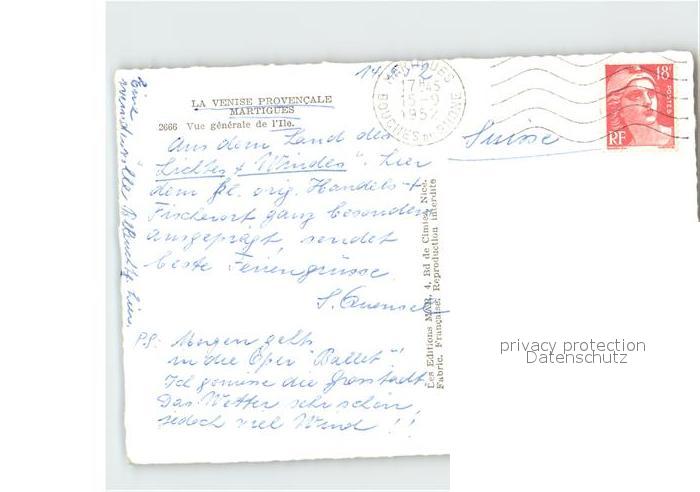 LA VENISE PROVENÇALE
MARTIGUES
2666 Vue générale de l'Ile.
14 52
MARTIGUES
17H45
15-9
1952
BOUCHES DU RHONE
18F
POSTES
RF
Suisse
"Aus dem Land des
Lichtes & Windes". hier
dem kl. orig. Handels- &
Fischerort ganz besonders
ausgeprägt, sendet
beste Feriengrüsse
S.
P.S: Morgen gehts
in die Oper "Ballet"!
Ich geniesse die Grosstadt.
Das Wetter sehr schön,
jedoch viel Wind !!
Eine
hier.
Les Editions MAR, 4, Bd de Cimiez, Nice.
Fabric. Française. Reproduction interdite
privacy protection
Datenschutz